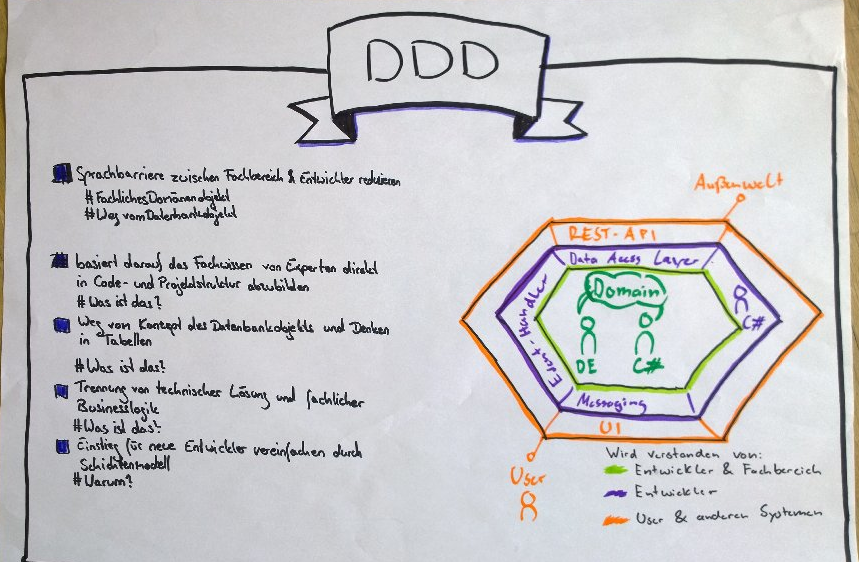 DDD
Sprachbarriere zwischen Fachbereich & Entwickler reduzieren
# FachlichesDomänenobjekt
# Weg vom Datenbankobjekt
basiert darauf das Fachwissen von Experten direkt
in Code- und Projektstruktur abzubilden
# Was ist das?
Weg von Konzept des Datenbankobjekts und Denken
in Tabellen
#Was ist das?
Trennung von technischer Lösung und fachlicher
Businesslogik
#Was ist das?
Einstieg für neue Entwickler vereinfachen durch
Schichtenmodell
#Warum?
Außenwelt
REST-API
Data Access Layer
Event-Handler
Domain
C#
DE
C#
Messaging
UI
User
Wird verstanden von:
Entwickler & Fachbereich
Entwickler
User & anderen Systemen